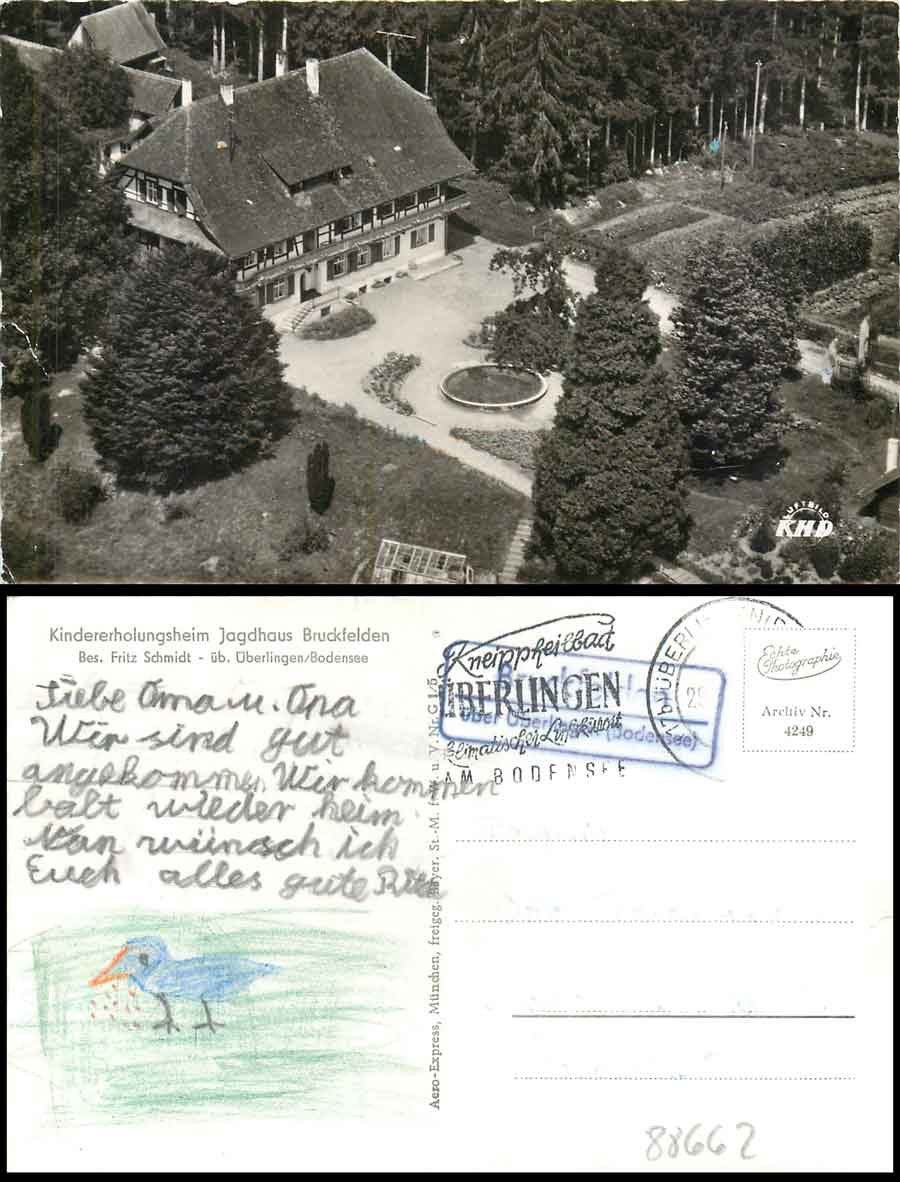 LUFTBILD
KHD
Kindererholungsheim Jagdhaus Bruckfelden
Bes. Fritz Schmidt - üb. Überlingen/Bodensee
Liebe Oma u. Opa
Wir sind gut
angekommen Wir kommen
balt wieder heim
Nan wünsch ich
Euch alles gute Rita
Aero-Express, München, freigeg. Bayer. St.-M. f. u. V. Nr. G 1/5
Kneippheilbad
ÜBERLINGEN
klimatischer Luftkurort
AM BODENSEE
über Überlingen (Bodensee)
ÜBERLINGEN
Echte
Photographie
Archiv Nr.
4249
88662